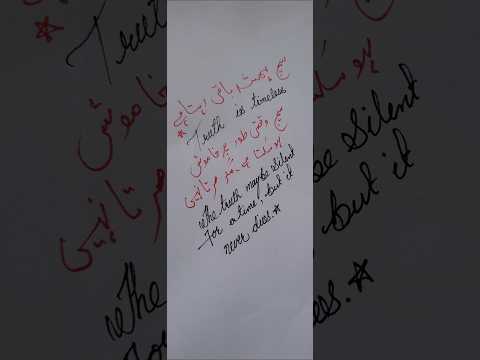 سچ ہمیشہ باقی رہتا ہے
Truth is timeless
سچ وقتی طور پر خاموش
ہو سکتا ہے۔ مگر مرتا نہیں
The truth may be silent
For a time, but it
never dies.